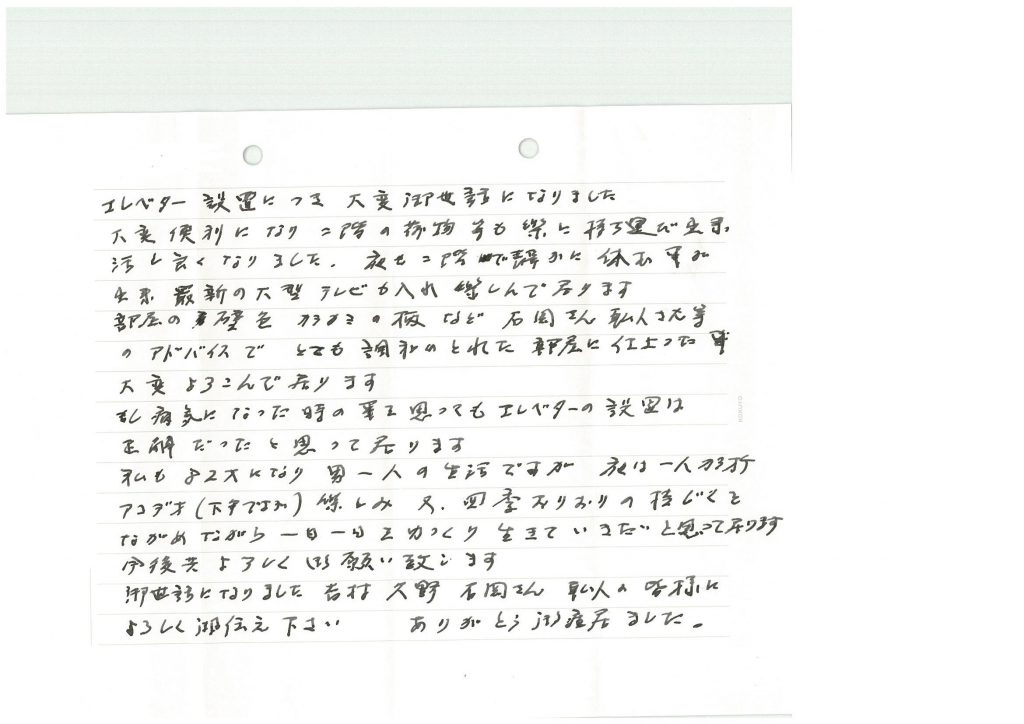 エレベター設置につき 大変御世話になりました
大変便利になり 二階の荷物等も楽に持ち運び出来
活し良くなりました。 夜も二階で静かに休む事が
出来 最新の大型テレビも入れ 楽しんで居ります
部屋の壁色 の板など 石岡さん 職人さん等
のアドバイスで とても調和のとれた部屋に仕上った事
大変よろこんで居ります
病気になった時の事を思ってもエレベターの設置は
正解だったと思って居ります
私も 82才になり 男一人の生活ですが 夜は一人
(下手ですが) 楽しみ 又、四季おりおりの 
ながめながら 一日一日をゆっくり生きていきたいと思って居ります
今後共よろしく御願い致します
御世話になりました 吉村 久野 石岡さん 職人の皆様に
よろしく御伝え下さい ありがとう御座居ました。
KOKUYO